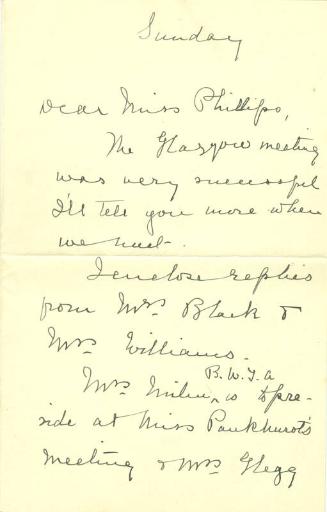 Sunday
Dear Miss Phillips,
The Glasgow meeting
was very successful
I'll tell you more when
we meet.
I enclose replies
from Mrs Black &
Mrs Williams.
B.W.T.A
Mrs Milne, is to pre-
side at Miss Pankhurst's
meeting & Mrs Glegg